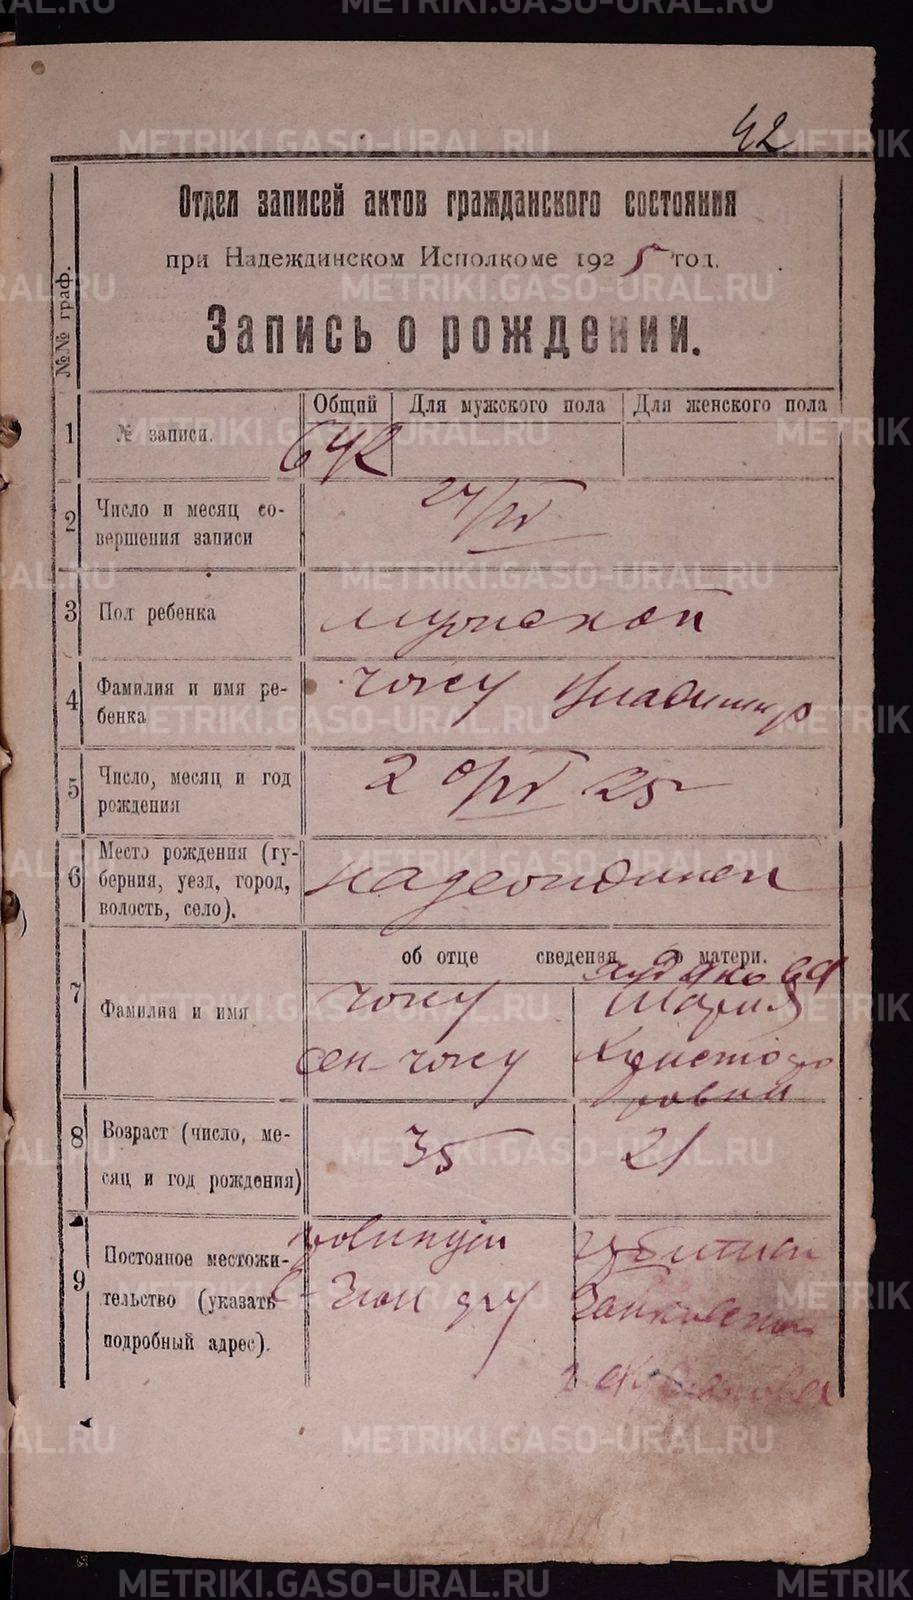 42
Отдел записей актов гражданского состояния
при Надеждинском Исполкоме 1925 год.
Запись о рождении.
№№ граф.
Общий Для мужского пола Для женского пола
1 № записи. 642
2 Число и месяц со-
вершения записи
3 Пол ребенка мужской
4 Фамилия и имя ре-
бенка Чожу Владимир
5 Число, месяц и год
рождения 2 25
6 Место рождения (гу-
берния, уезд, город,
волость, село). Надеждинск
об отце сведения о матери.
7 Фамилия и имя Чожу Мария
сен-чожу Христофо
ровна
8 Возраст (число, ме-
сяц и год рождения) 35 21
9 Постояное местожи-
тельство (указать
подробный адрес).
METRIKI.GASO-URAL.RU